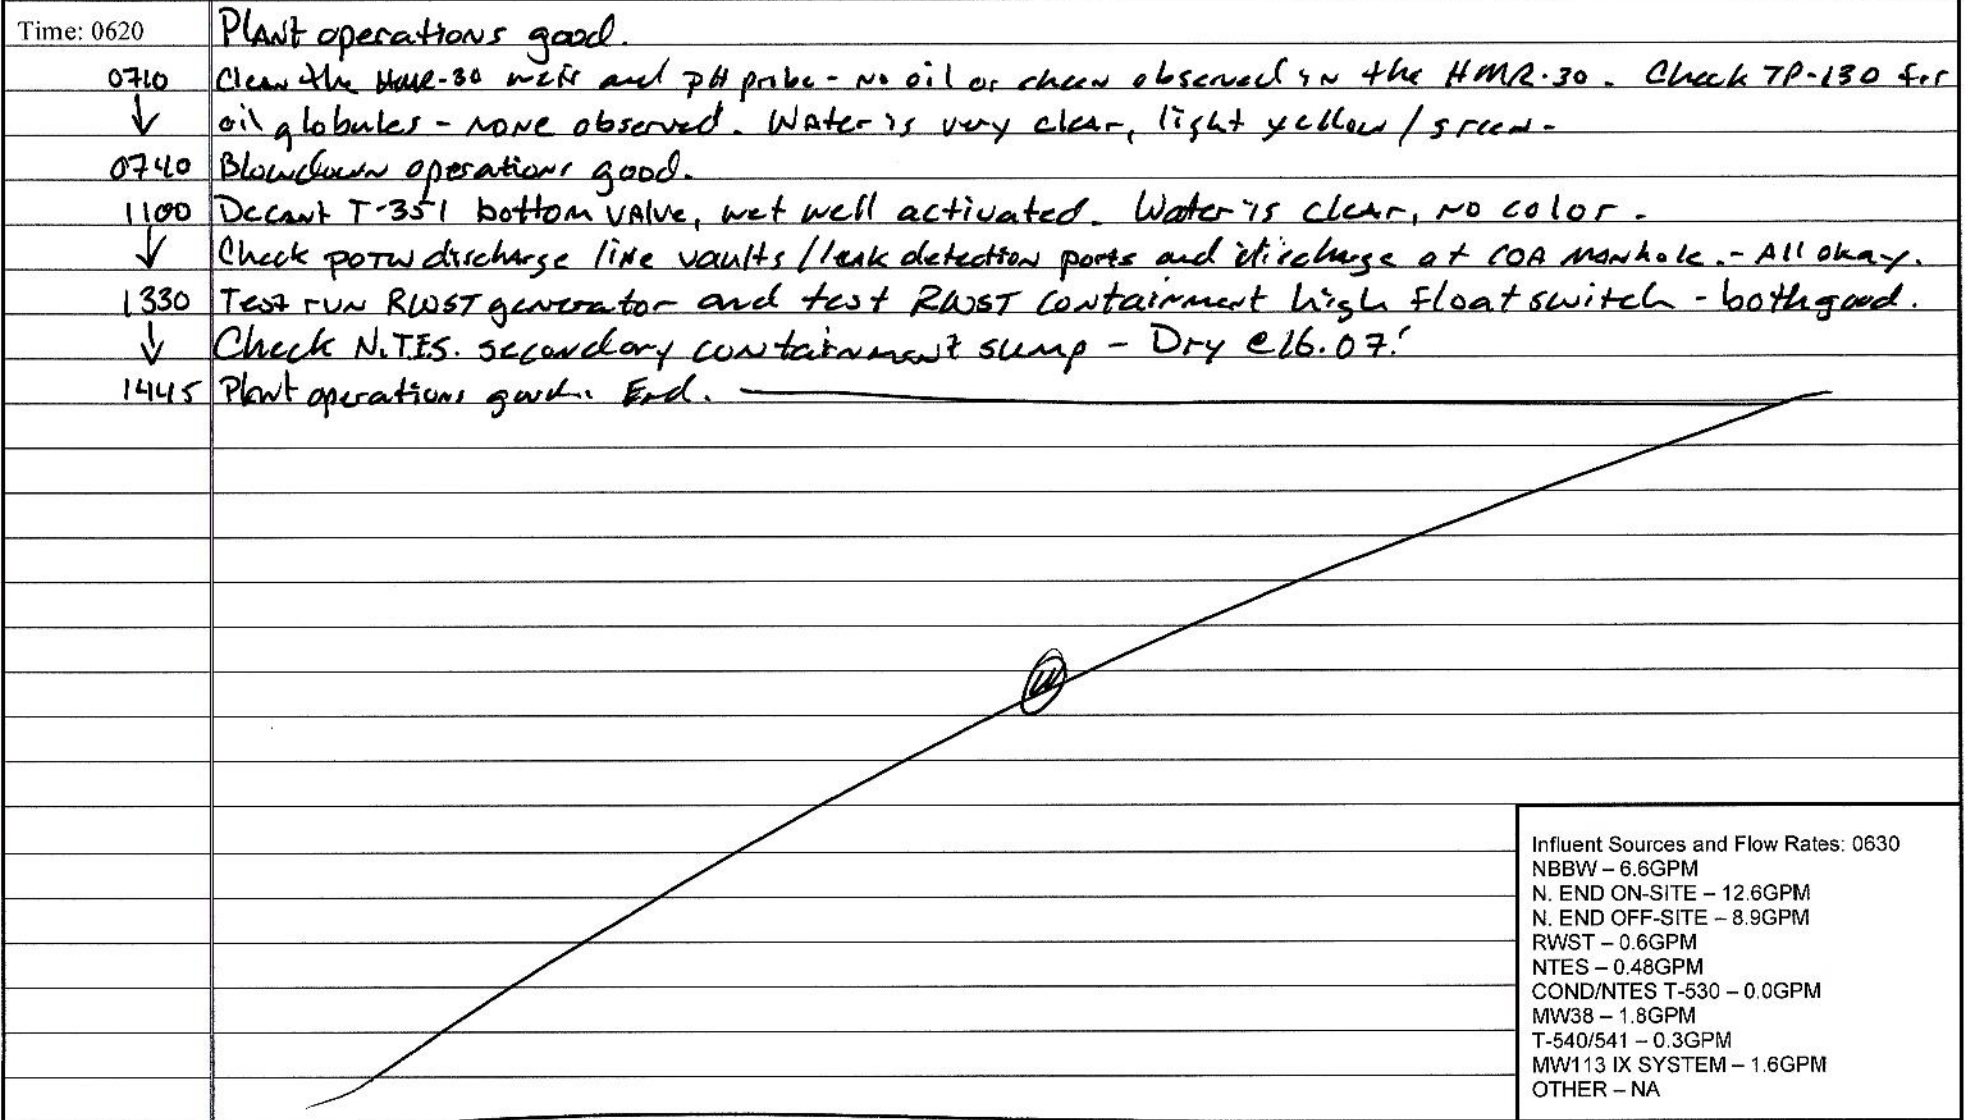 Time: 0620 Plant operations good.
0710 Clean the HMR-30 weir and pH probe - No oil or sheen observed in the HMR-30. Check TP-130 for
↓ oil globules - none observed. Water is very clear, light yellow/green-
0740 Blowdown operations good.
1100 Decant T-351 bottom valve, wet well activated. Water is clear, no color.
↓ Check POTW discharge line vaults/leak detection ports and discharge at COA manhole.- All okay.
1330 Test run RWST generator and test RWST containment high float switch - both good.
↓ Check N.T.E.S. secondary containment sump - Dry @ 16.07'
1445 Plant operations good. End.
Influent Sources and Flow Rates: 0630
NBBW – 6.6GPM
N. END ON-SITE – 12.6GPM
N. END OFF-SITE – 8.9GPM
RWST – 0.6GPM
NTES – 0.48GPM
COND/NTES T-530 – 0.0GPM
MW38 – 1.8GPM
T-540/541 – 0.3GPM
MW113 IX SYSTEM – 1.6GPM
OTHER – NA